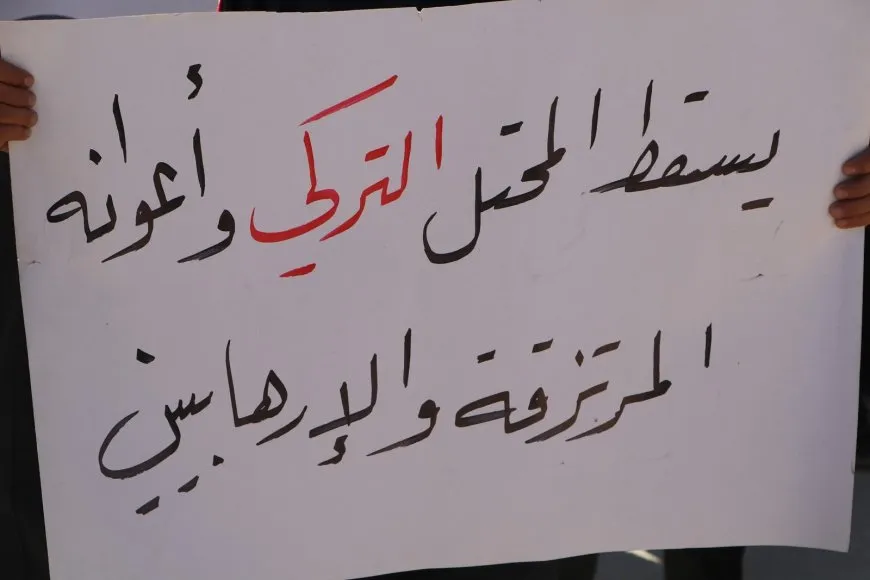 يسقط المحتل التركي وأعوانه
المرتزقة والإرهابيين